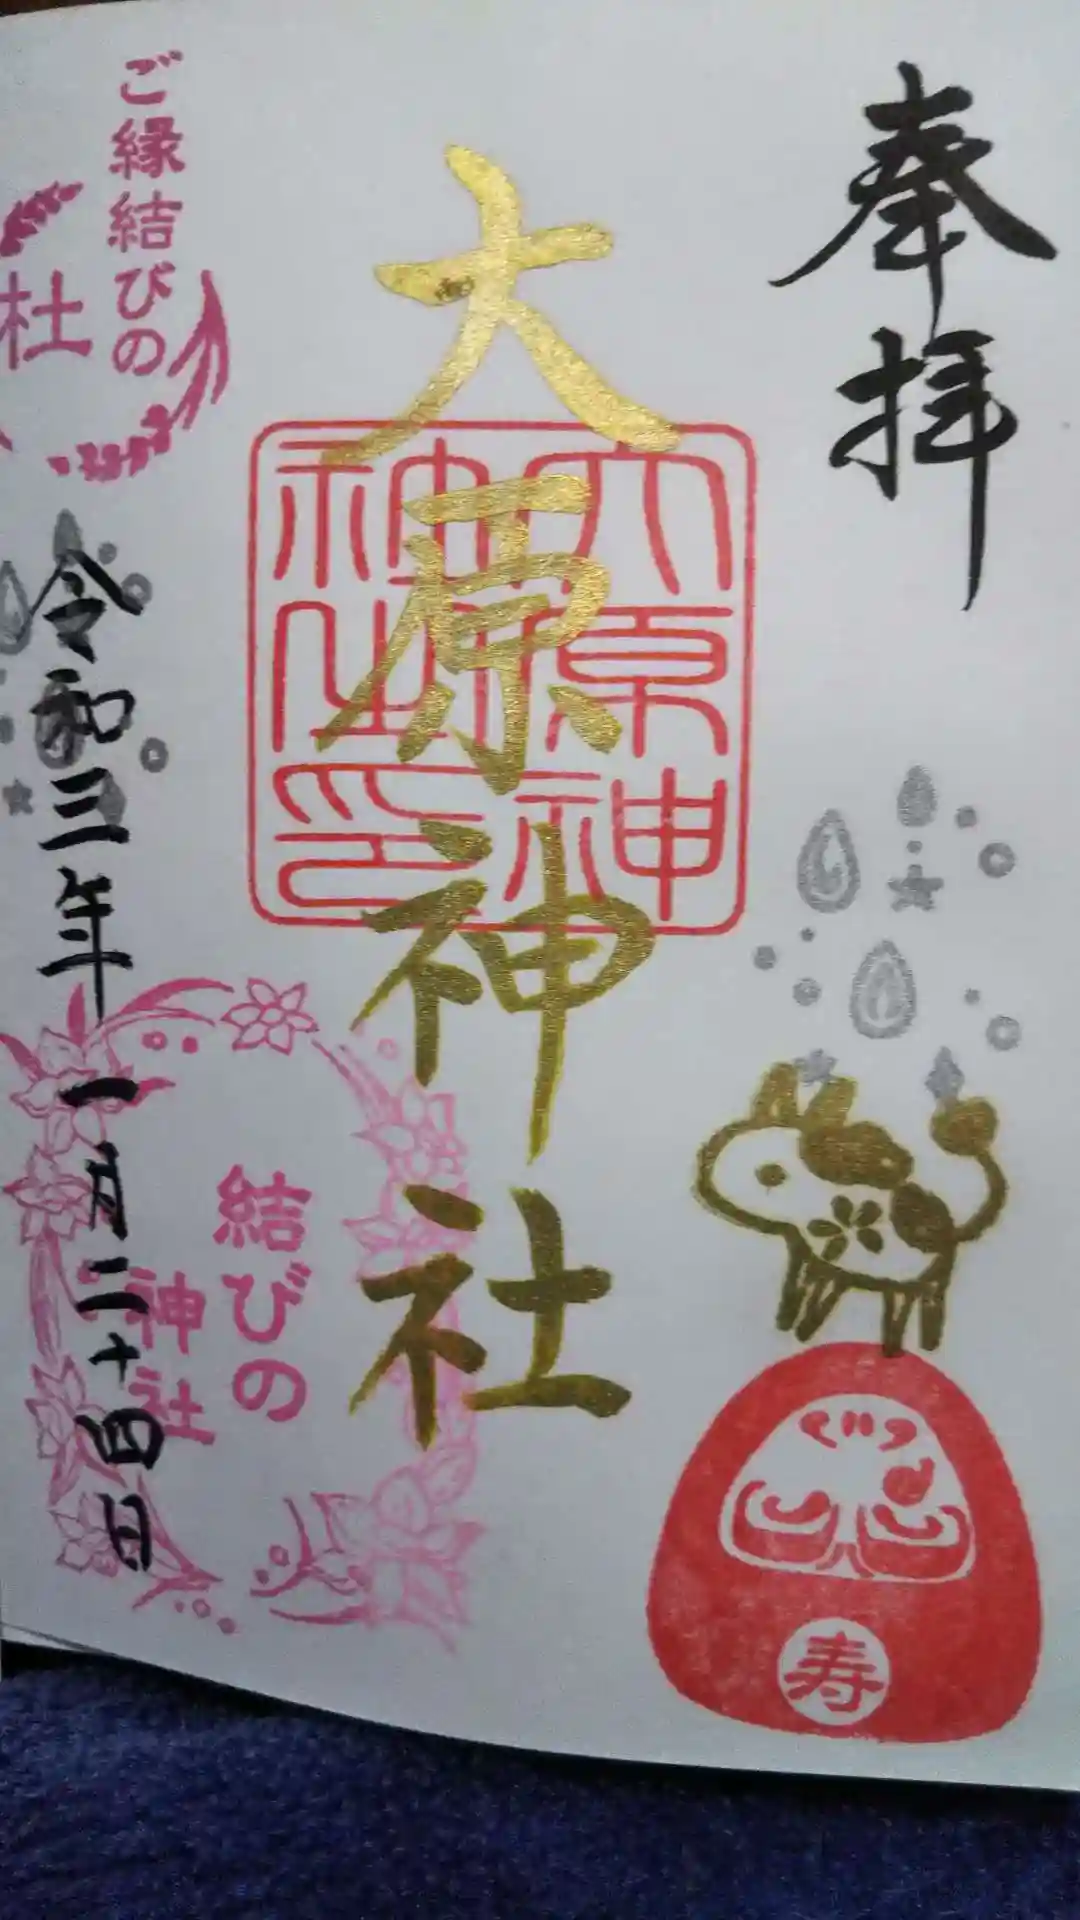 奉拝
寿
大原神社
大原神
社之印
ご縁結びの
杜
結びの
神社
令和三年一月二十四日